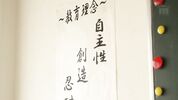 ～教育理念～
自主性
創造
忍